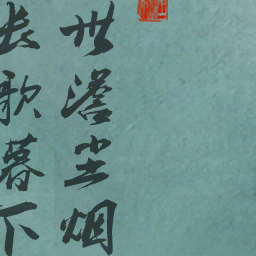 世澹尘烟
长歌暮下